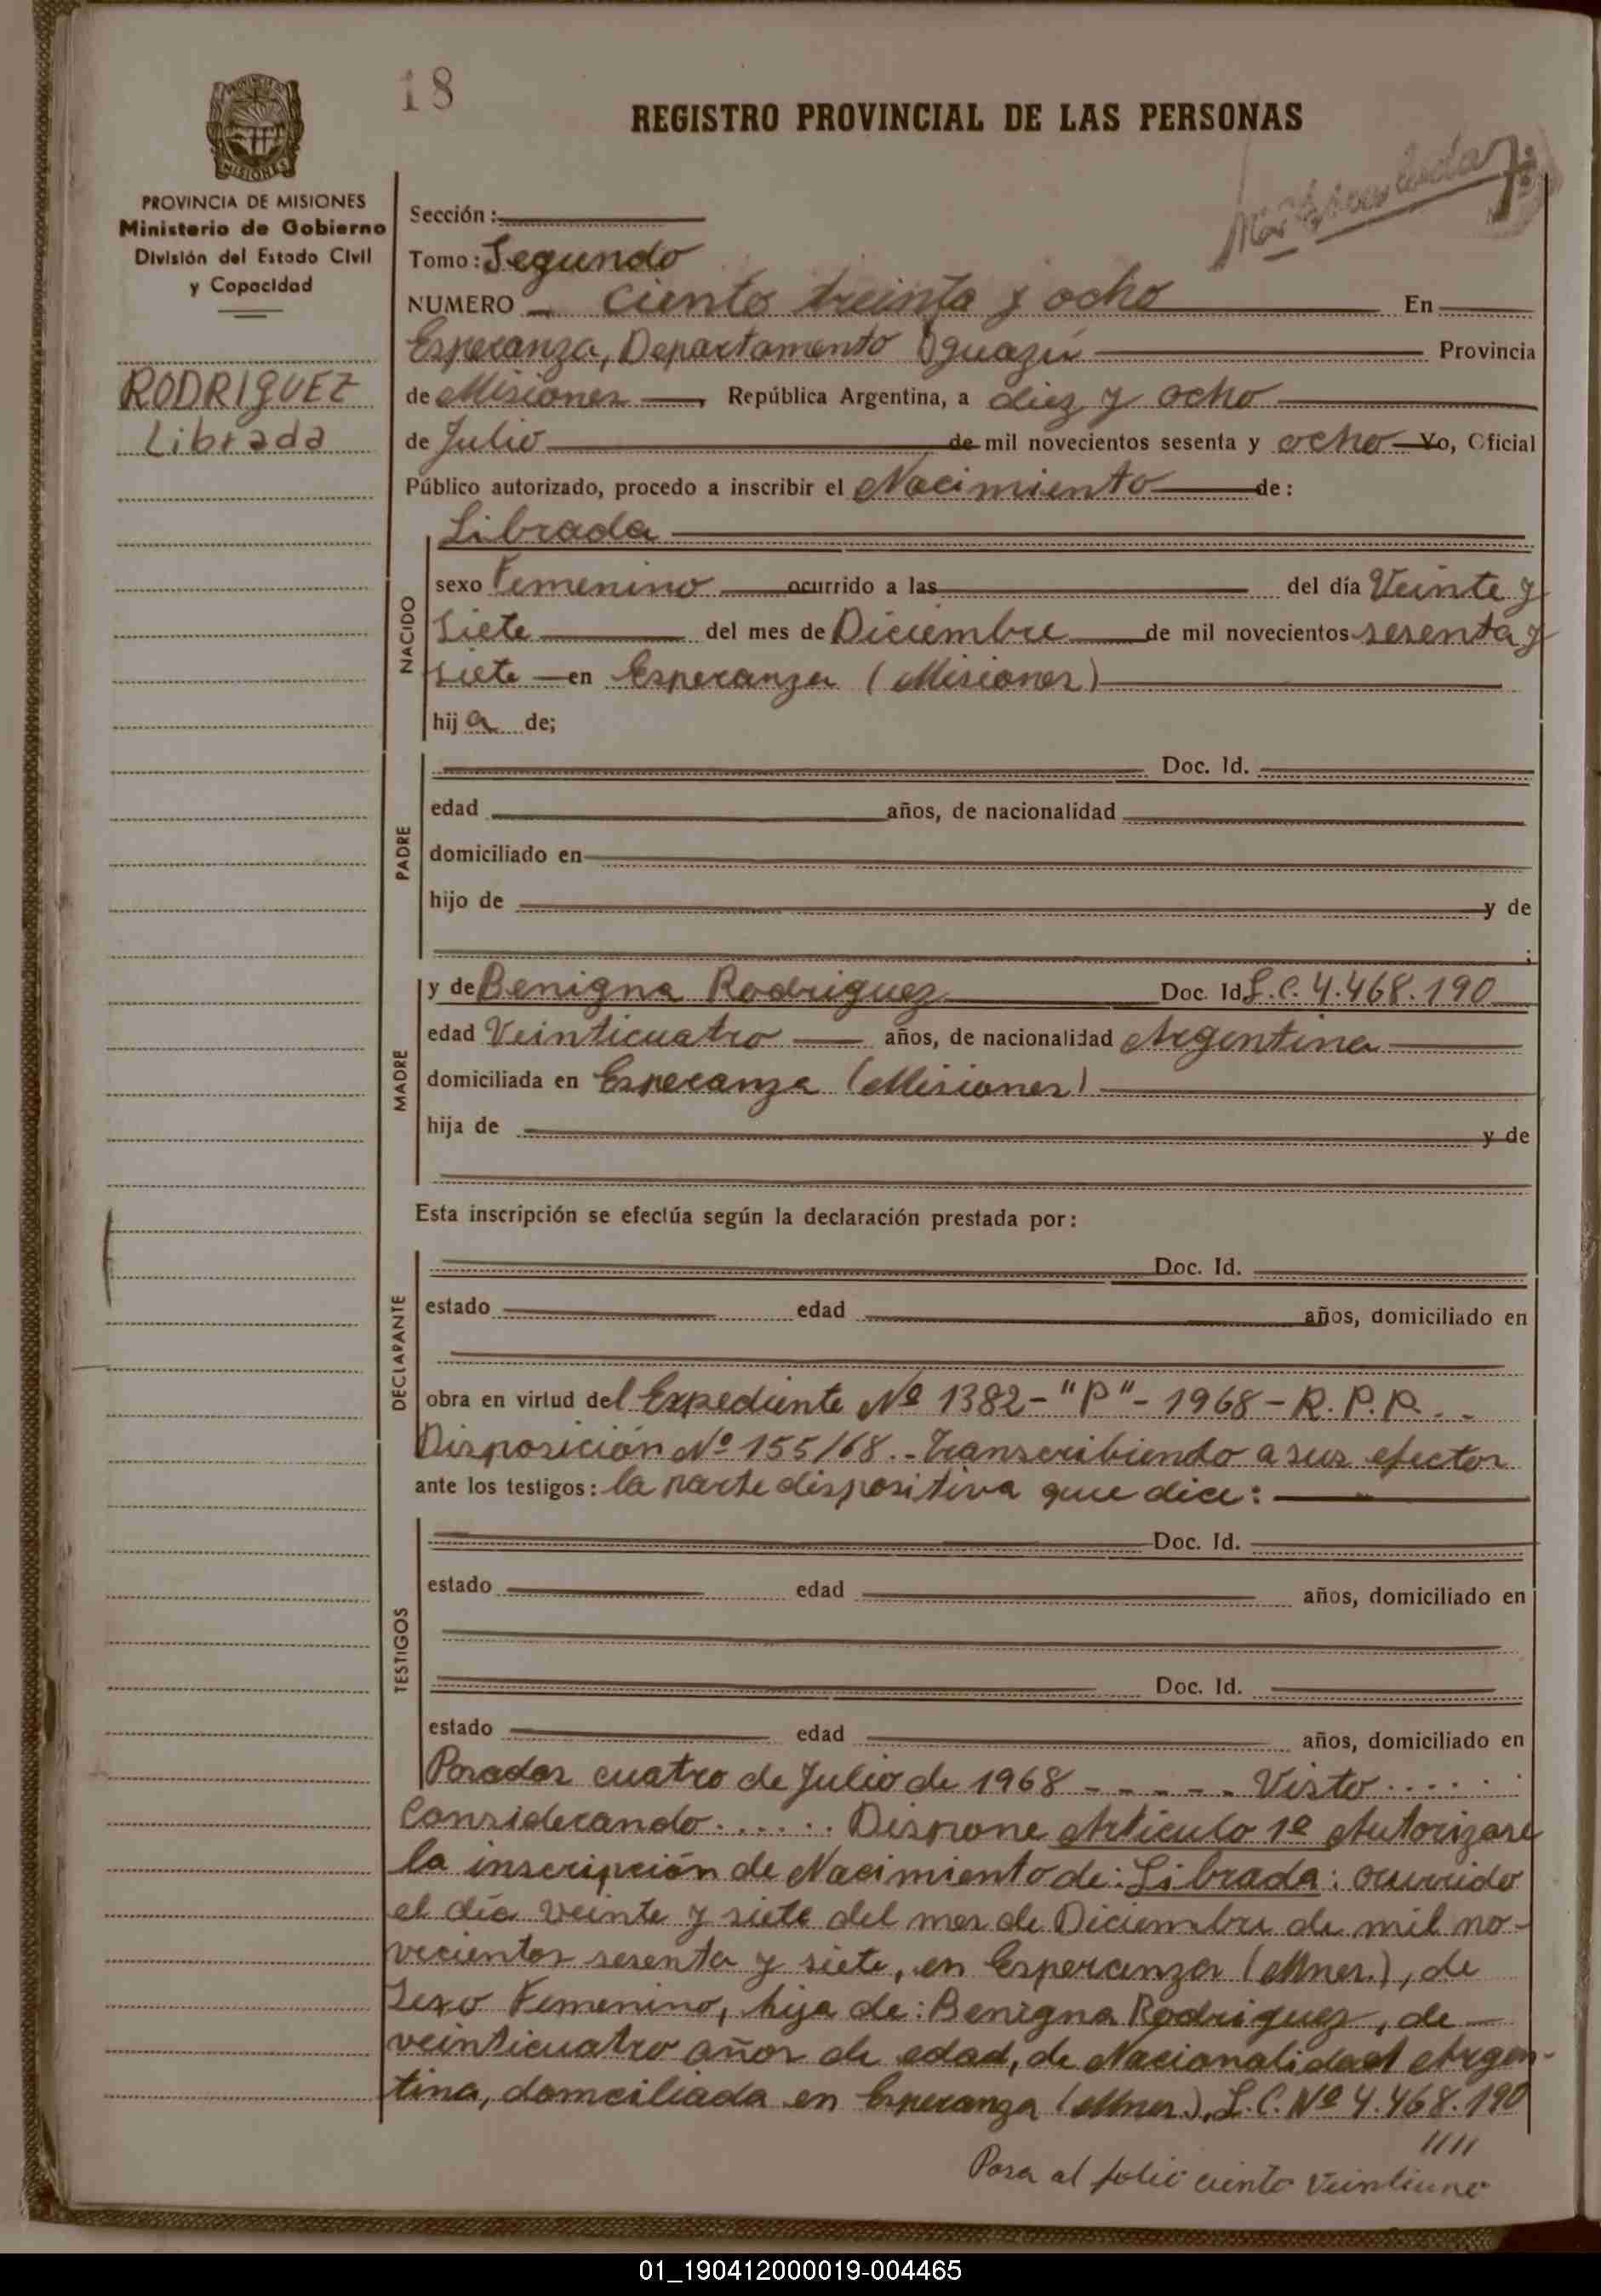 18
REGISTRO PROVINCIAL DE LAS PERSONAS
MISIONES
PROVINCIA DE MISIONES
Ministerio de Gobierno
División del Estado Civil
y Capacidad
RODRIGUEZ
Librada
Sección:
Tomo: Segundo
NUMERO ciento treinta y ocho En
Esperanza, Departamento Iguazú Provincia
de Misiones, República Argentina, a diez y ocho
de Julio de mil novecientos sesenta y ocho Yo, Oficial
Público autorizado, procedo a inscribir el Nacimiento de:
NACIDO
Librada
sexo Femenino ocurrido a las del día Veinte y
siete del mes de Diciembre de mil novecientos sesenta y
siete en Esperanza (Misiones)
hija de;
PADRE
Doc. Id.
edad años, de nacionalidad
domiciliado en
hijo de y de
;
MADRE
y de Benigna Rodriguez Doc. Id L.C. 4.468.190
edad Veinticuatro años, de nacionalidad Argentina
domiciliada en Esperanza (Misiones)
hija de y de
Esta inscripción se efectúa según la declaración prestada por:
DECLARANTE
Doc. Id.
estado edad años, domiciliado en
obra en virtud del Expediente Nº 1382-"P"-1968-R.P.P.--
Disposición Nº 155/68.-Transcribiendo a sus efectos
ante los testigos: la parte dispositiva que dice:
TESTIGOS
Doc. Id.
estado edad años, domiciliado en
Doc. Id.
estado edad años, domiciliado en
Posadas cuatro de Julio de 1968 - - - - - Visto......
Considerando...... Dispone Artículo 1º Autorizase
la inscripción de Nacimiento de: Librada: ocurrido
el día veinte y siete del mes de Diciembre de mil no-
vecientos sesenta y siete, en Esperanza (Mnes.), de
Sexo Femenino, hija de: Benigna Rodriguez, de
veinticuatro años de edad, de Nacionalidad Argen-
tina, domiciliada en Esperanza (Mnes.), L.C. Nº 4.468.190
////
Pasa al folio ciento veintiuno
01_190412000019-004465